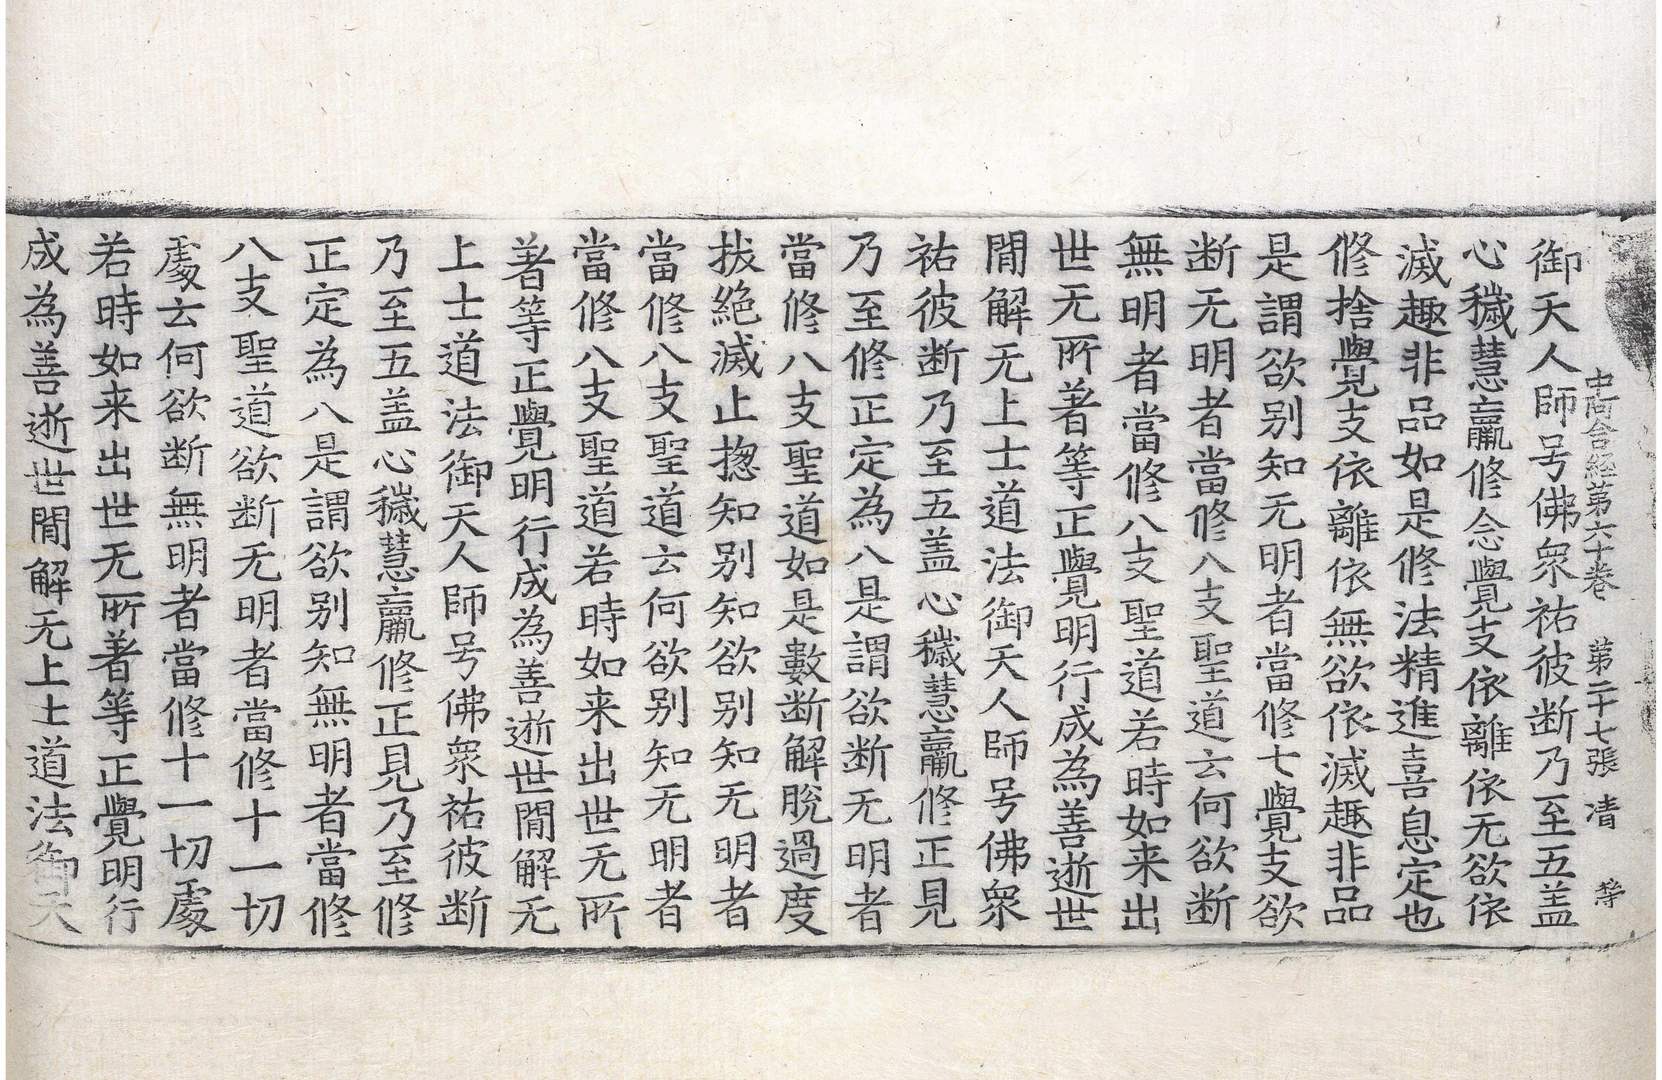 中阿含経第六十卷 第二十七張 清 䓁
御天人師号佛衆祐彼断乃至五盖
心穢慧羸修念覺支依離依无欲依
滅趣非品如是修法精進喜息定也
修捨覺支依離依無欲依滅趣非品
是謂欲别知无明者當修七覺支欲
断无明者當修八支聖道云何欲断
無明者當修八支聖道若時如来出
世无所著等正覺明行成為善逝世
間解无上士道法御天人師号佛衆
祐彼断乃至五盖心穢慧羸修正見
乃至修正定為八是謂欲断无明者
當修八支聖道如是數断解脫過度
拔絕滅止揔知别知欲别知无明者
當修八支聖道云何欲别知无明者
當修八支聖道若時如来出世无所
著等正覺明行成為善逝世間解无
上士道法御天人師号佛衆祐彼断
乃至五盖心穢慧羸修正見乃至修
正定為八是謂欲别知無明者當修
八支聖道欲断无明者當修十一切
處云何欲断無明者當修十一切處
若時如来出世无所著等正覺明行
成為善逝世間解无上士道法御天